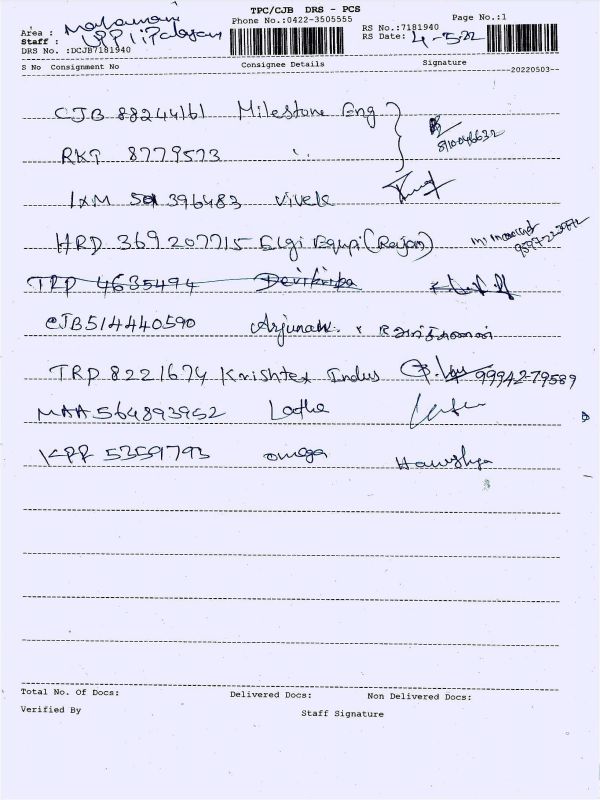 TPC/CJB DRS - PCS
Phone No.:0422-3505555
Page No.:1
Area :
Staff : UPPilipalayam
RS No.:7181940
RS Date: 4-5-22
DRS No. :DCJB7181940
S No Consignment No Consignee Details Signature
20220503
CJB 88244161 Milestone Eng
RKT 8779573 "
IXM 501 396483 Vivek
HRD 369207715 Elgi Equpi (Rajam)
TRP 4635494 Devikripa
CJB514440590 Arjunan
TRP 8221674 Krishtex Indus 99942-79589
MAA 564893952 Lotha
KPR 53591793 omega
Total No. Of Docs: Delivered Docs: Non Delivered Docs:
Verified By Staff Signature